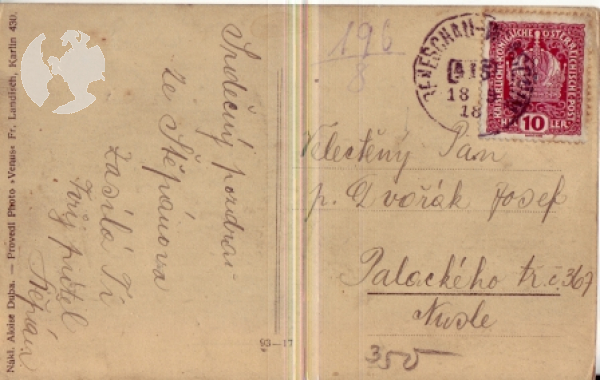 Nákl. Alois Duba. — Provedl Photo »Venus« Fr. Landisch, Karlín 430.
Srdečný pozdrav
ze Štěpánova
zasílá Ti
Tvůj přítel
Štěpán
93-17
196
8
BENESCHAU
18
18
KAISERLICHE KÖNIGLICHE ÖSTERREICHISCHE POST
HELLER
10
Velectěný Pan
p. Dvořák Josef
Palackého tř. č. 367
Nusle
355